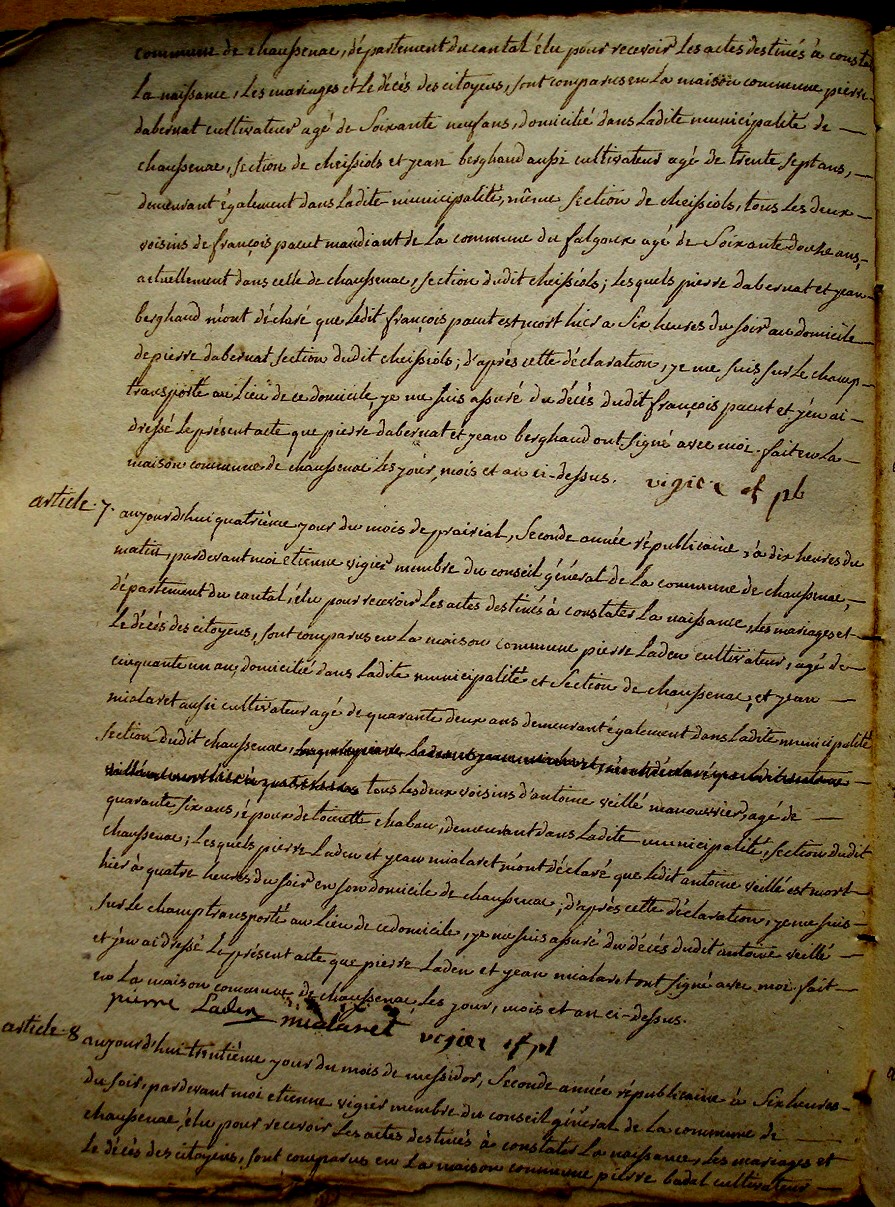 commune de chaussenac, département du cantal élu pour recevoir Les actes destinés à consta
La naissance, Les mariages et Le décès des citoyens, sont comparus en La maison commune pierre
dabernat cultivateur agé de Soixante neuf ans, domicilié dans Ladite municipalité de —
chaussenac, section de cheissiols et jean berghaud aussi cultivateur agé de trente sept ans, —
demeurant également dans Ladite municipalité, même section de cheissiols, tous Les deux —
voisins de françois pacut mandiant de La commune du falgoux agé de Soixante douze ans,
actuellement dans celle de chaussenac, section dudit cheissiols; Lesquels pierre dabernat et jean
berghaud m'ont déclaré que Ledit françois pacut est mort hier a Six heures du soir au domicile
de pierre dabernat section dudit cheissiols; d'après cette déclaration, je me suis sur Le champ
transporté au Lieu de ce domicile, je me suis assuré du décès dudit françois pacut et j'en ai
dressé Le présent acte que pierre dabernat et jean berghaud ont signé avec moi. fait en La
maison commune de chaussenac Les jour, mois et an ci-dessus. vigier of pb
article 7. aujourd'hui quatrième jour du mois de prairial, Seconde année républicaine, à dix heures du
matin, pardevant moi etienne vigier membre du conseil général de La commune de chaussenac,
département du cantal, élu pour recevoir Les actes destinés à constater La naissance, Les mariages et
Le décès des citoyens, sont comparus en La maison commune pierre Laden cultivateur, agé de
cinquante un an, domicilié dans Ladite municipalité et Section de chaussenac, et jean —
mialaret aussi cultivateur agé de quarante deux ans demeurant également dans Ladite municipalité
section dudit chaussenac,
tous Les deux voisins d'antoine veillé manouvrier, agé de —
quarante six ans, époux de toinette chabau, demeurant dans Ladite municipalité, section dudit
chaussenac; Lesquels pierre Laden et jean mialaret m'ont déclaré que Ledit antoine veillé est mort
hier à quatre heures du soir en son domicile de chaussenac; d'après cette déclaration, je me suis
sur Le champ transporté au Lieu de ce domicile, je me suis assuré du décès dudit antoine veillé —
et j'en ai dressé Le présent acte que pierre Laden et jean mialaret ont signé avec moi. fait —
en La maison commune de chaussenac Les jour, mois et an ci-dessus.
pierre Laden mialaret vigier of pb
article 8 aujourd'hui trentième jour du mois de messidor, Seconde année républicaine à Six heures
du soir, pardevant moi etienne vigier membre du conseil général de La commune de —
chaussenac, élu pour recevoir Les actes destinés à constater La naissance, Les mariages et
Le décès des citoyens, sont comparus en La maison commune pierre badal cultivateur —